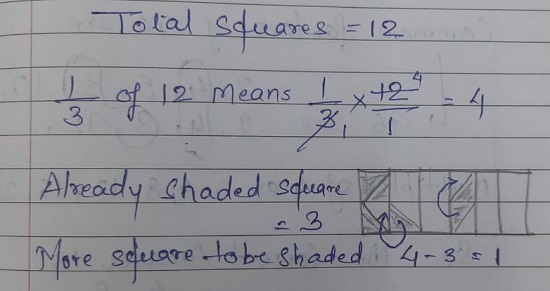 Total squares = 12
1/3 of 12 means 1/3 1 × 12 4/1 = 4
Already shaded square = 3
More square to be shaded 4 - 3 = 1